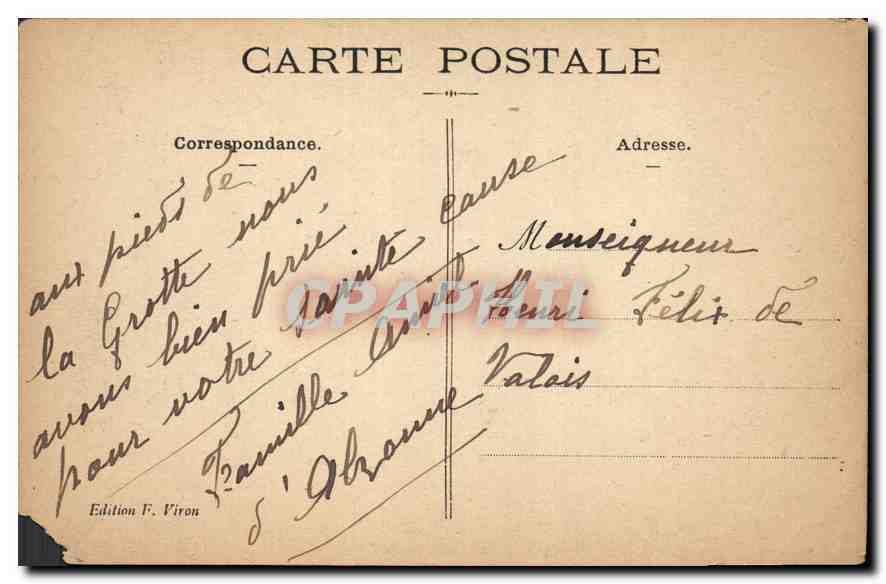 CARTE POSTALE
Correspondance.
aux pieds de
la Grotte nous
avons bien prié
pour votre sainte cause
Famille Amiel
d'Alzonne
Edition F. Viron
Adresse.
Monseigneur
Henri Félix de
Valois
CPAPHIL